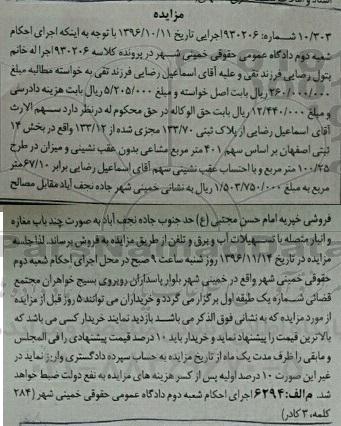 مزایده
۱۰/۳۰۳ شماره: ۹۳۰۲۰۶اجرایی تاریخ ۱۳۹۶/۱۰/۱۱ با توجه به اینکه اجرای احکام
شعبه دوم دادگاه عمومی حقوقی خمینی شهر در پرونده کلاسه ۹۳۰۲۰۶اجرا له خانم
بتول رضایی فرزند تقی و علیه آقای اسماعیل رضایی فرزند تقی به خواسته مطالبه مبلغ
۲۶۰/۰۰۰/۰۰۰ ریال بابت اصل خواسته و مبلغ ۵/۲۰۵/۰۰۰ ریال بابت هزینه دادرسی
و مبلغ ۱۲/۴۴۰/۰۰۰ ریال بابت حق الوکاله در حق محکوم له درنظر دارد سهم الارث
آقای اسماعیل رضایی از پلاک ثبتی ۱۳۳/۷۰ مجزی شده از ۱۳۳/۱۲ واقع در بخش ۱۴
ثبتی اصفهان بر اساس سهم ۴۰۱ متر مربع مشاعی بدون عقب نشینی و میزان در طرح
۱۰۰/۲۵ متر مربع و با احتساب عقب نشینی سهم آقای اسماعیل رضایی برابر ۶۷/۱۰متر
مربع به مبلغ ۱/۵۰۳/۷۵۰/۰۰۰ ریال به نشانی خمینی شهر جاده نجف آباد مقابل مصالح
فروشی خیریه امام حسن مجتبی (ع) حد جنوب جاده نجف آباد به صورت چند باب مغازه
و انبار متصله با تسهیلات آب و برق و تلفن از طریق مزایده به فروش برساند. لذا جلسه
مزایده در تاریخ ۱۳۹۶/۱۱/۱۴ روز شنبه ساعت ۹ صبح در محل اجرای احکام شعبه دوم
حقوقی خمینی شهر واقع در خمینی شهر بلوار پاسداران روبروی بسیج خواهران مجتمع
قضائی شماره یک طبقه اول برگزار می گردد و خریداران می توانند ۵ روز قبل از مزایده
از مورد مزایده که به نشانی فوق الذکر می باشد بازدید نمایند خریدار کسی می باشد که
بالاترین قیمت را پیشنهاد نماید و خریدار باید ۱۰ درصد قیمت پیشنهادی را فی المجلس
و مابقی را ظرف مدت یک ماه از تاریخ مزایده به حساب سپرده دادگستری واریز نماید در
غیر این صورت ۱۰ درصد اولیه پس از کسر هزینه های مزایده به نفع دولت ضبط خواهد
شد. م الف:۶۲۹۴ اجرای احکام شعبه دوم دادگاه عمومی حقوقی خمینی شهر (۲۸۴
کلمه، ۳ کادر)